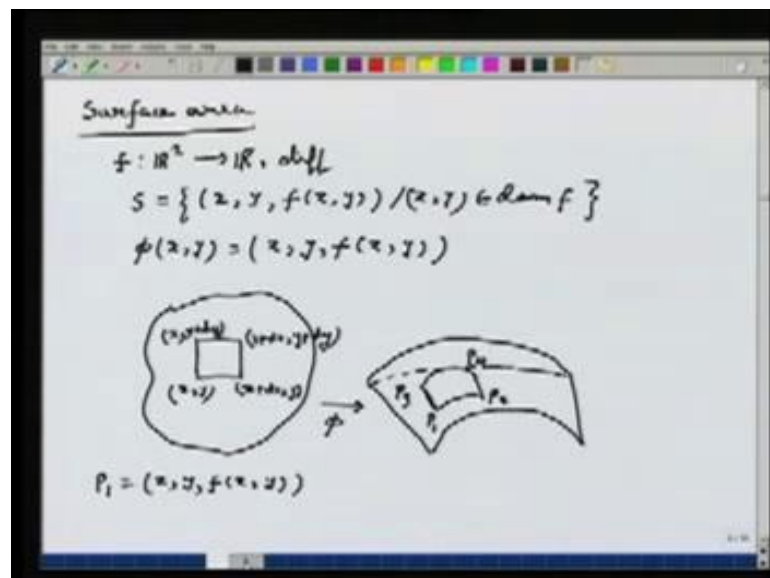 Surface area
f : ℝ² → ℝ, diff
S = { (x, y, f(x,y)) / (x,y) ∈ dom f }
φ(x,y) = (x, y, f(x,y))
(x,y+dy) (x+dx,y+dy)
(x,y) (x+dx,y)
φ
P₃ P₄
P₁ P₂
P₁ = (x, y, f(x,y))